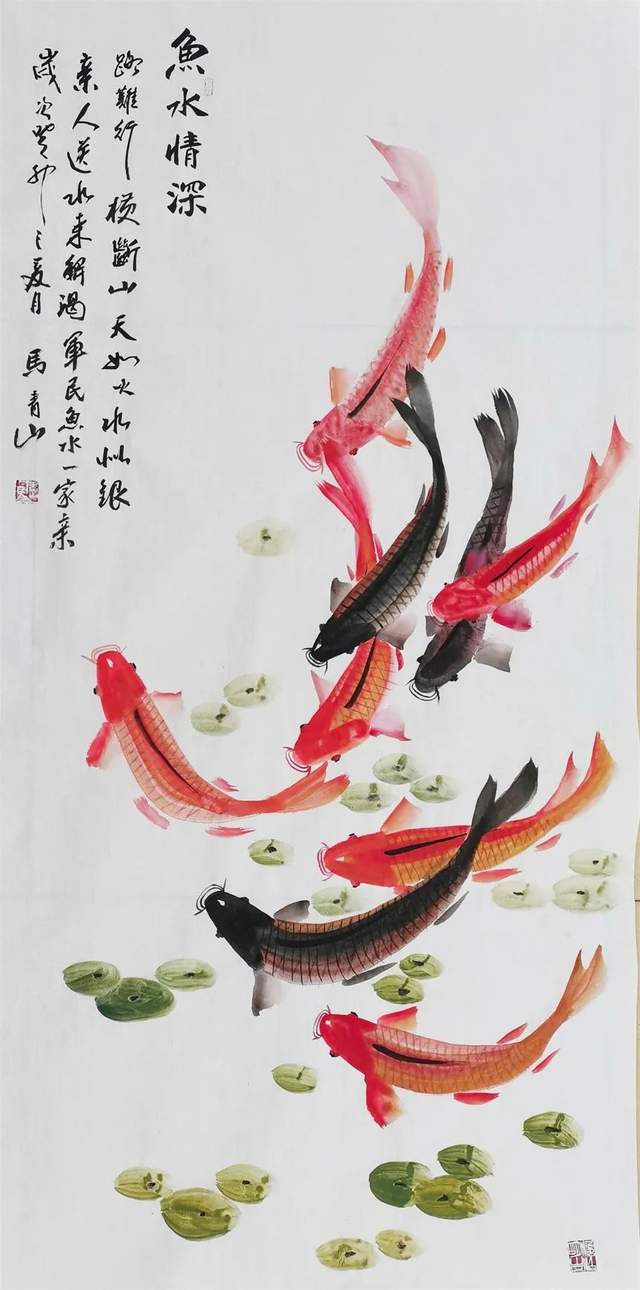 魚水情深
路難行橫斷山天如火水似銀
亲人送水来解渴軍民魚水一家亲
歲次癸卯之夏月 馬青山